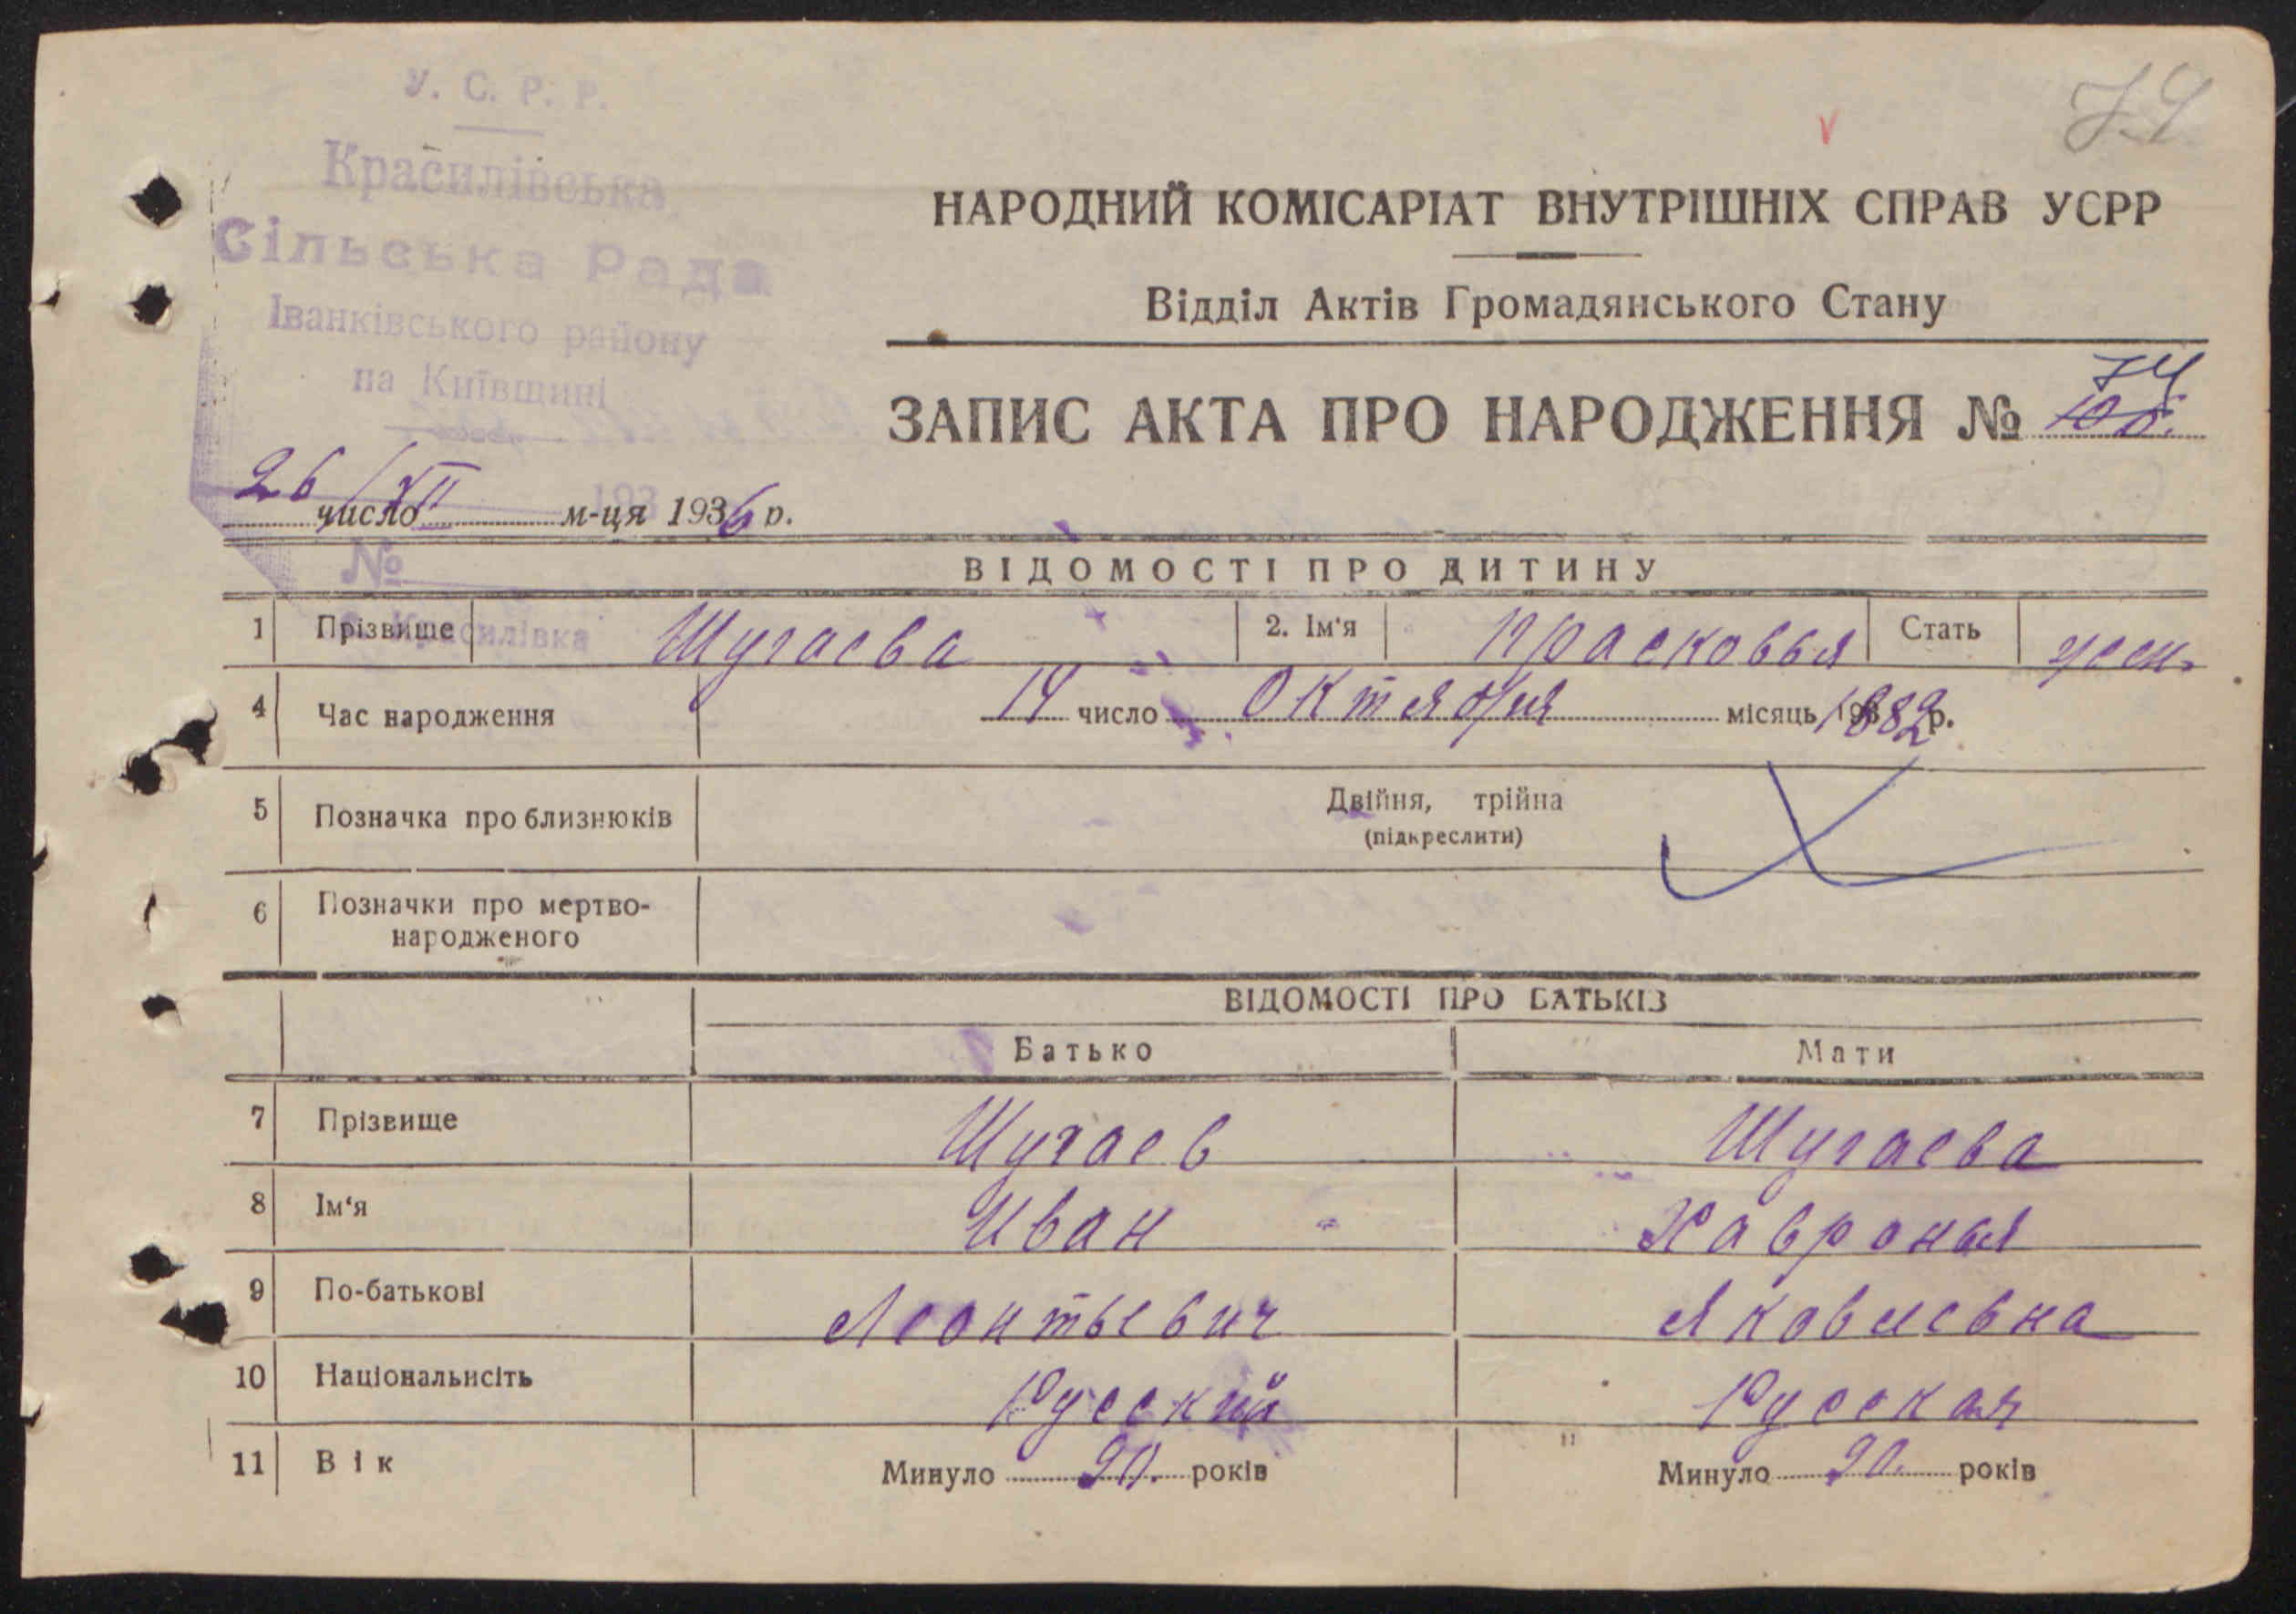 У. С. Р. Р.
Красилівська
Сільська Рада
Іванківського району
на Київщині
74
НАРОДНИЙ КОМІСАРІАТ ВНУТРІШНІХ СПРАВ УСРР
Відділ Актів Громадянського Стану
ЗАПИС АКТА ПРО НАРОДЖЕННЯ № 74
26/XII число м-ця 1936 р.
193
№
с. Красилівка
ВІДОМОСТІ ПРО ДИТИНУ
1 Прізвище Шугаева 2. Ім'я Прасковья Стать жен.
4 Час народження 14 число Октября місяць 1882 р.
5 Позначка про близнюків Двійня, трійна
(підкреслити)
6 Позначки про мертво-
народженого
ВІДОМОСТІ ПРО БАТЬКІВ
Батько Мати
7 Прізвище Шугаев Шугаева
8 Ім'я Иван Хавронья
9 По-батькові Леонтьевич Яковлевна
10 Національність Русский Русская
11 Вік Минуло 20. років Минуло 20. років